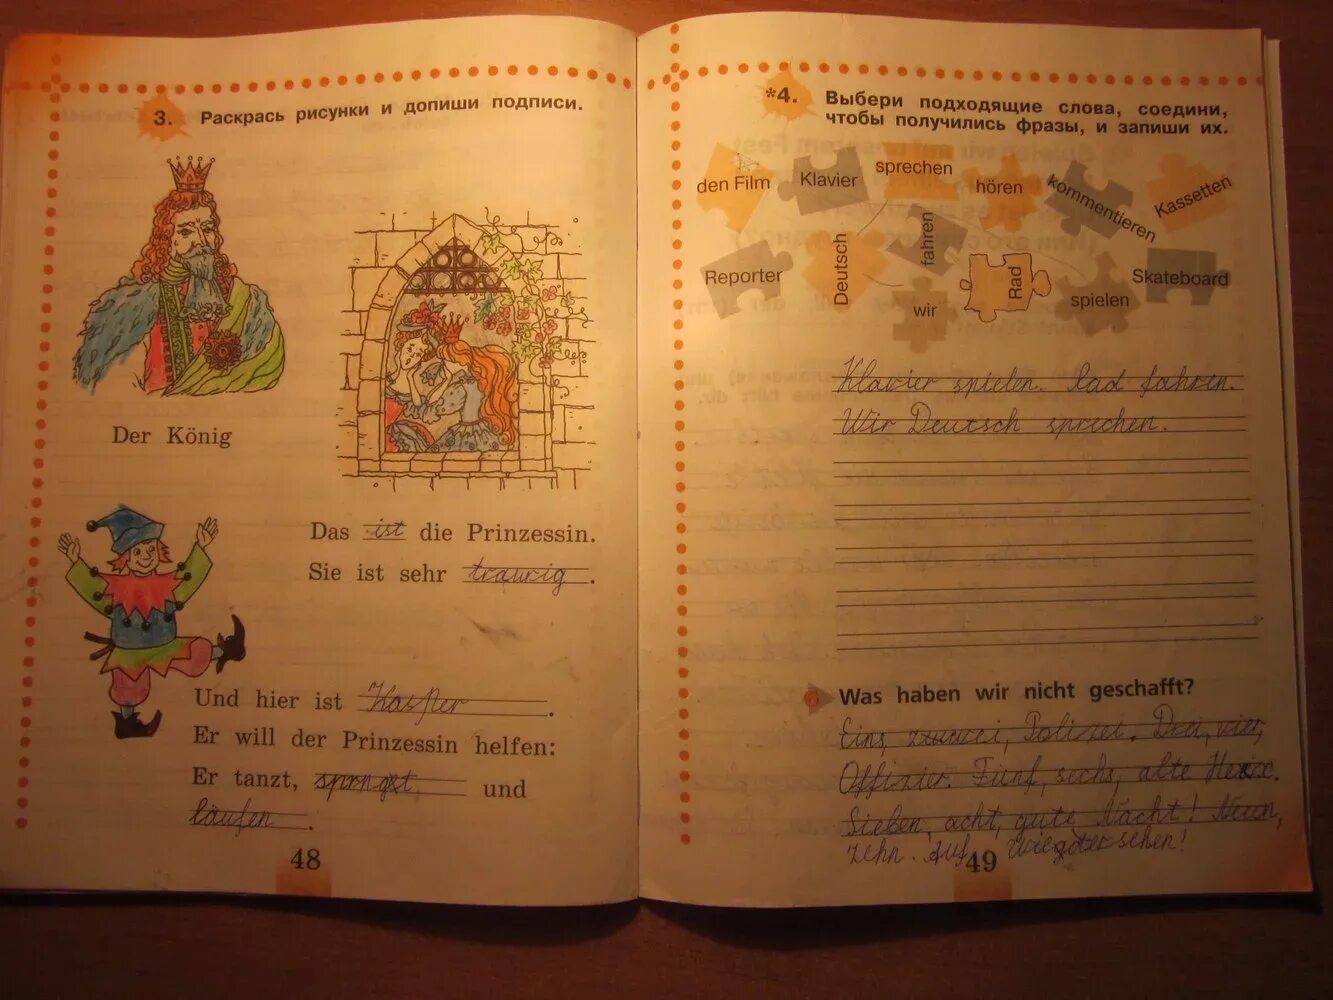 3. Раскрась рисунки и допиши подписи.
Der König
Das ist die Prinzessin.
Sie ist sehr traurig.
Und hier ist Kasper.
Er will der Prinzessin helfen:
Er tanzt, springt und
läufen.
48
*4. Выбери подходящие слова, соедини,
чтобы получились фразы, и запиши их.
den Film Klavier sprechen hören kommentieren Kassetten
Reporter Deutsch fahren wir Rad spielen Skateboard
Klavier spielen. Rad fahren.
Wir Deutsch sprechen.
Was haben wir nicht geschafft?
Eins, zwei, Polizei. Drei, vier,
Offizier. Fünf, sechs, alte Hex.
Sieben, acht, gute Nacht! Neun,
zehn. Auf Wiedersehen!
49